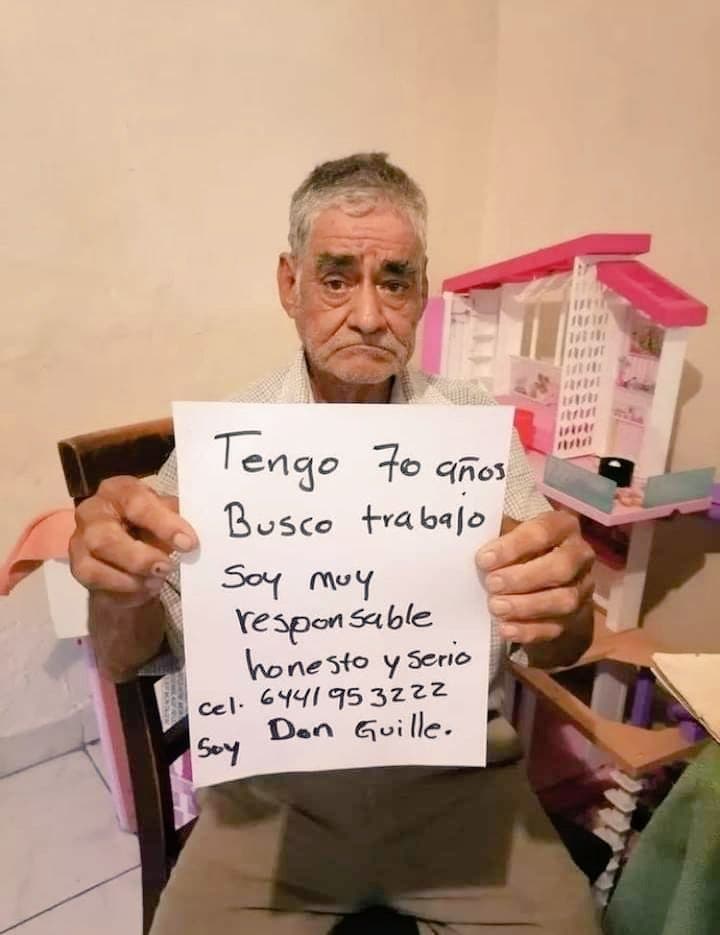 Tengo 70 años
Busco trabajo
Soy muy
responsable
honesto y serio
cel. 6441953222
Soy Don Guille.